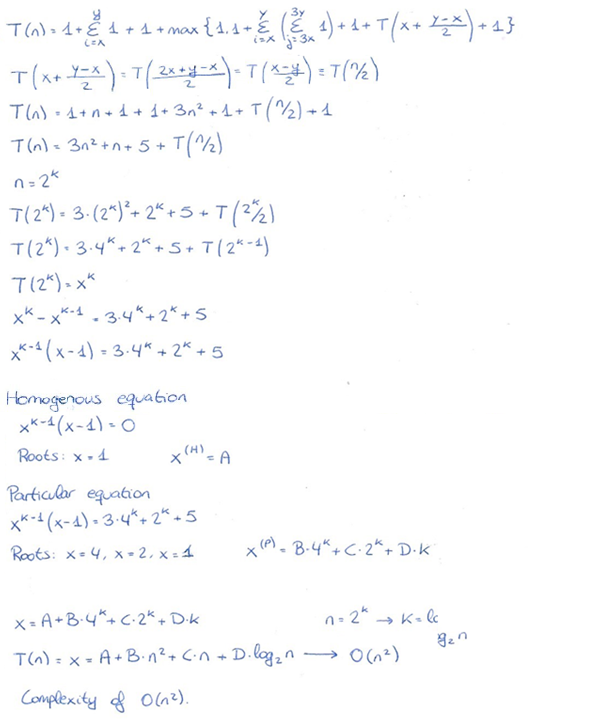 T(n) = 1 + Σ_{i=x}^{y} 1 + 1 + max {1, 1 + Σ_{i=x}^{y} (Σ_{j=3x}^{3y} 1) + 1 + T(x + (y-x)/2) + 1}
T(x + (y-x)/2) = T((2x+y-x)/2) = T((x-y)/2) = T(n/2)
T(n) = 1 + n + 1 + 1 + 3n² + 1 + T(n/2) + 1
T(n) = 3n² + n + 5 + T(n/2)
n = 2^k
T(2^k) = 3·(2^k)² + 2^k + 5 + T(2^k/2)
T(2^k) = 3·4^k + 2^k + 5 + T(2^{k-1})
T(2^k) = x^k
x^k - x^{k-1} = 3·4^k + 2^k + 5
x^{k-1}(x-1) = 3·4^k + 2^k + 5
Homogenous equation
x^{k-1}(x-1) = 0
Roots: x = 1 x^{(H)} = A
Particular equation
x^{k-1}(x-1) = 3·4^k + 2^k + 5
Roots: x = 4, x = 2, x = 1 x^{(P)} = B·4^k + C·2^k + D·k
x = A + B·4^k + C·2^k + D·k n = 2^k → k = lo
g₂n
T(n) = x = A + B·n² + C·n + D·log₂n → O(n²)
Complexity of O(n²).